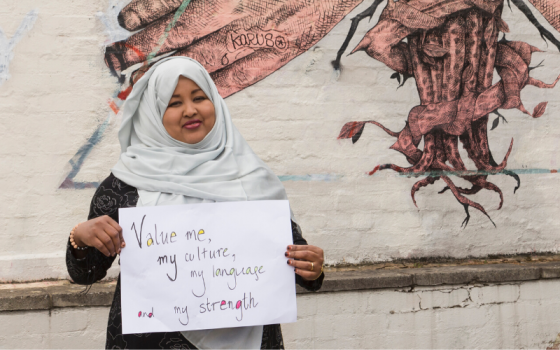 KARUBO
Value me,
my culture,
my language
and my strength